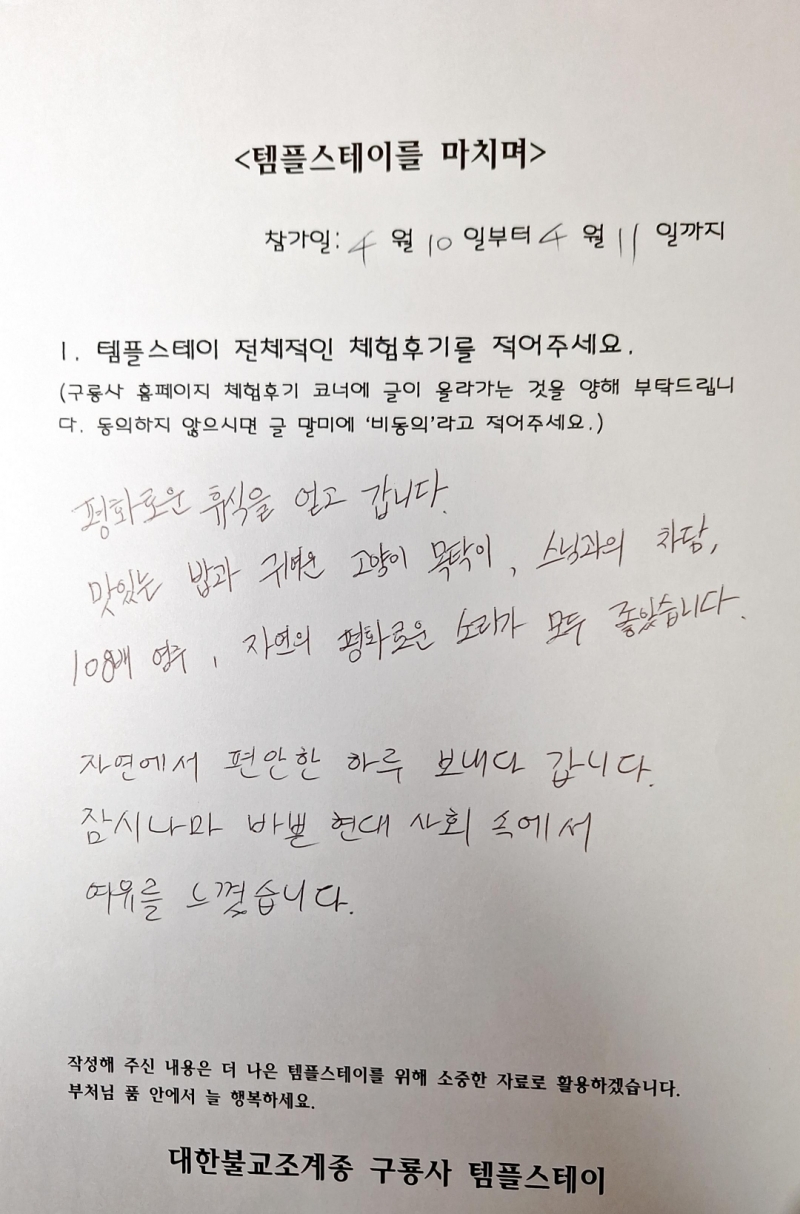 <템플스테이를 마치며>
참가일: 4 월 10 일부터 4 월 11 일까지
1. 템플스테이 전체적인 체험후기를 적어주세요.
(구룡사 홈페이지 체험후기 코너에 글이 올라가는 것을 양해 부탁드립니
다. 동의하지 않으시면 글 말미에 '비동의'라고 적어주세요.)
평화로운 휴식을 얻고 갑니다.
맛있는 밥과 귀여운 고양이 목탁이, 스님과의 차담,
108배 염주, 자연의 평화로운 소리가 모두 좋았습니다.
자연에서 편안한 하루 보내다 갑니다.
잠시나마 바쁜 현대 사회 속에서
여유를 느꼈습니다.
작성해 주신 내용은 더 나은 템플스테이를 위해 소중한 자료로 활용하겠습니다.
부처님 품 안에서 늘 행복하세요.
대한불교조계종 구룡사 템플스테이